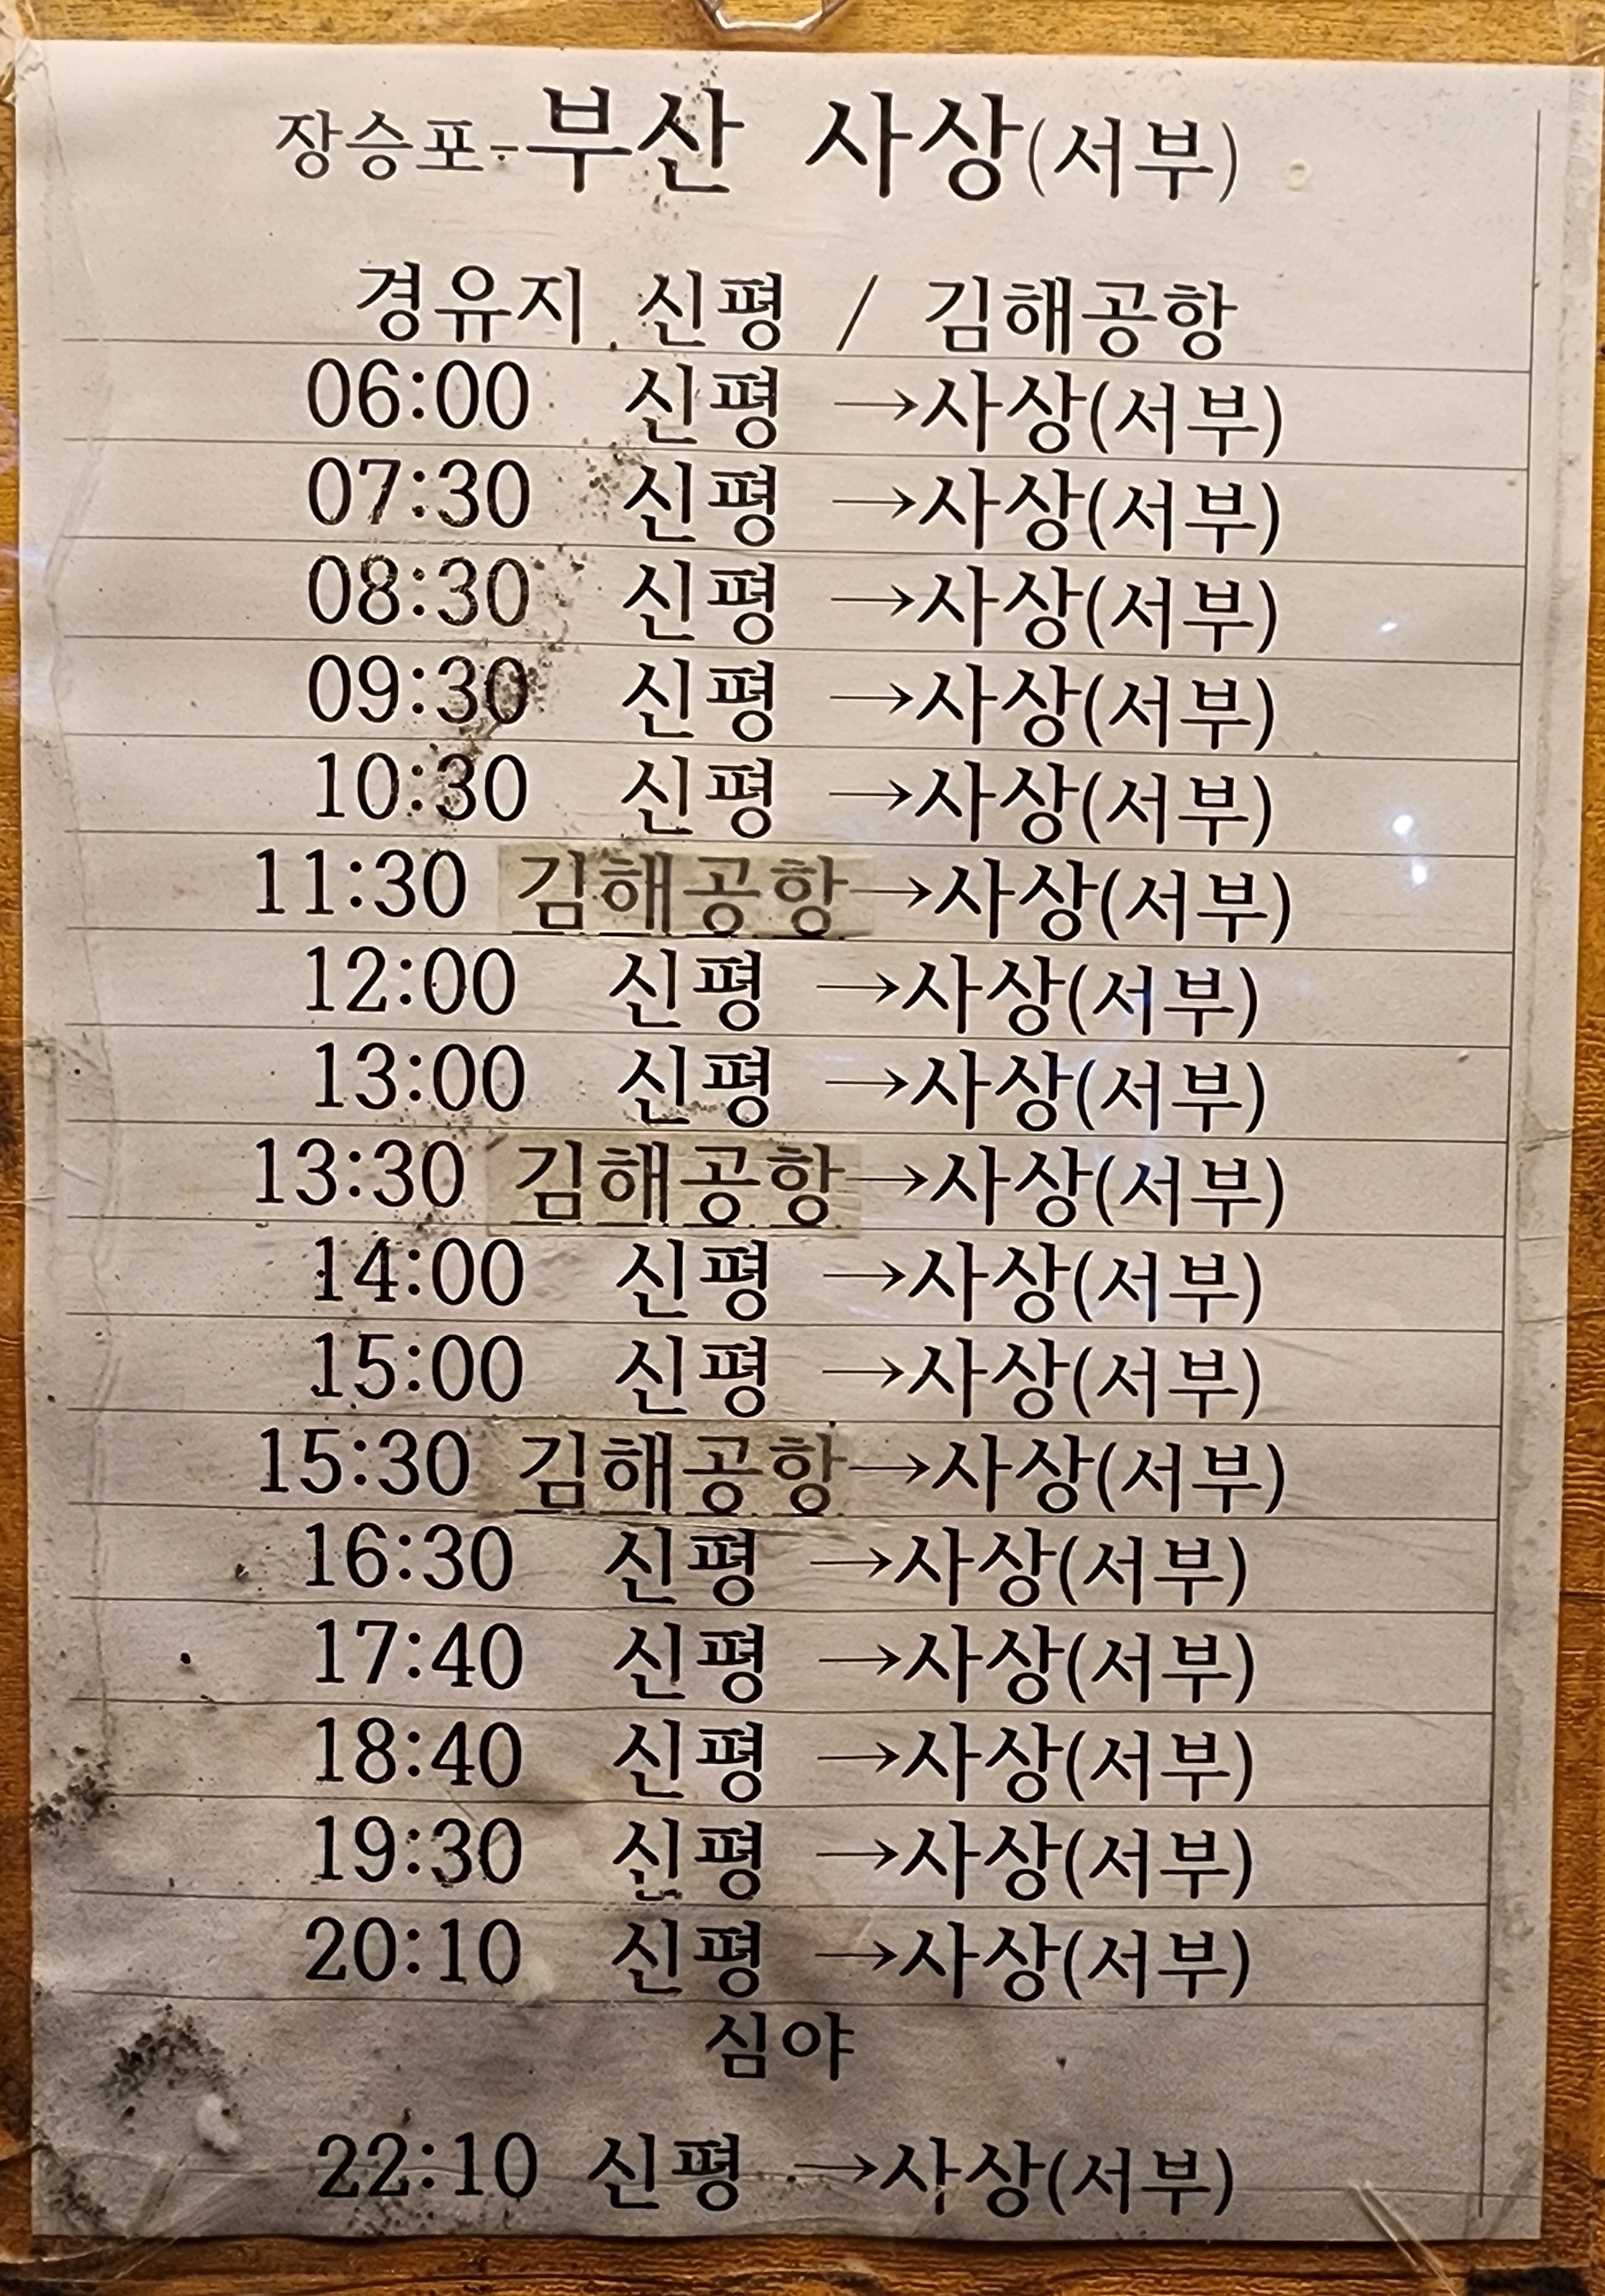 장승포-부산 사상(서부)
경유지 신평 / 김해공항
06:00 신평 →사상(서부)
07:30 신평 →사상(서부)
08:30 신평 →사상(서부)
09:30 신평 →사상(서부)
10:30 신평 →사상(서부)
11:30 김해공항→사상(서부)
12:00 신평 →사상(서부)
13:00 신평 →사상(서부)
13:30 김해공항→사상(서부)
14:00 신평 →사상(서부)
15:00 신평 →사상(서부)
15:30 김해공항→사상(서부)
16:30 신평 →사상(서부)
17:40 신평 →사상(서부)
18:40 신평 →사상(서부)
19:30 신평 →사상(서부)
20:10 신평 →사상(서부)
심야
22:10 신평 →사상(서부)